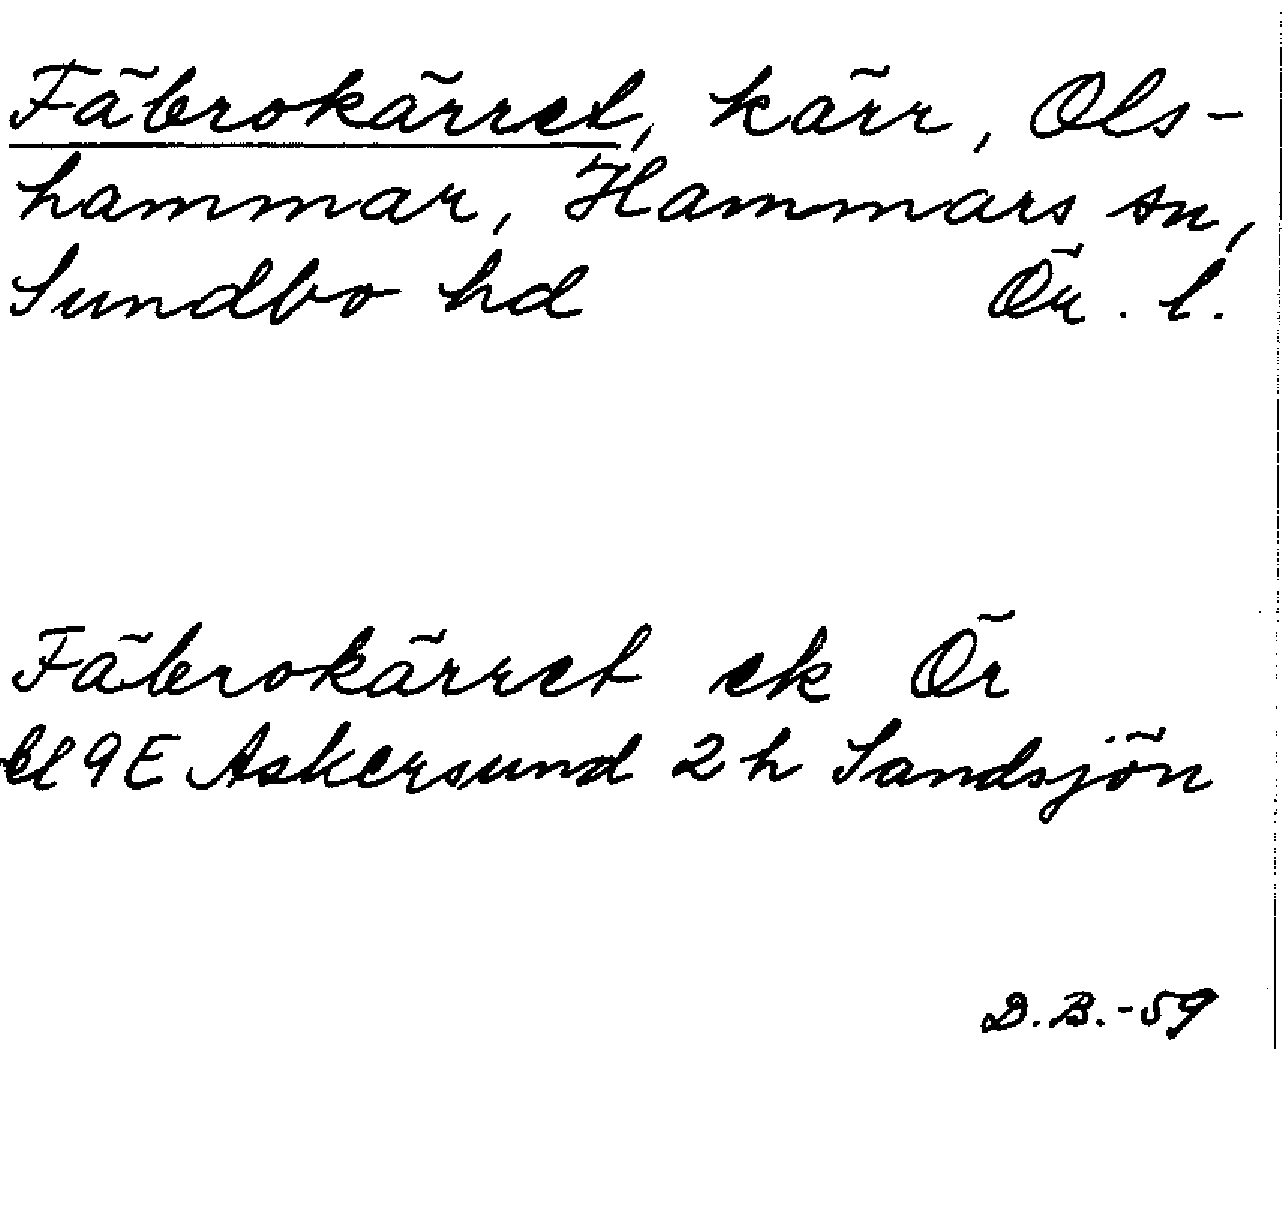 Fäbrokärret, kärr, Ols-
hammar, Hammars sn,
Sundbo hd Ör. l.
Fäbrokärret ek Ör
bl 9E Askersund 2 h Sandsjön
D.B.-59